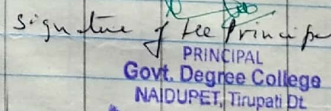 Signature of the Principa
PRINCIPAL
Govt. Degree College
NAIDUPET, Tirupati Dt.